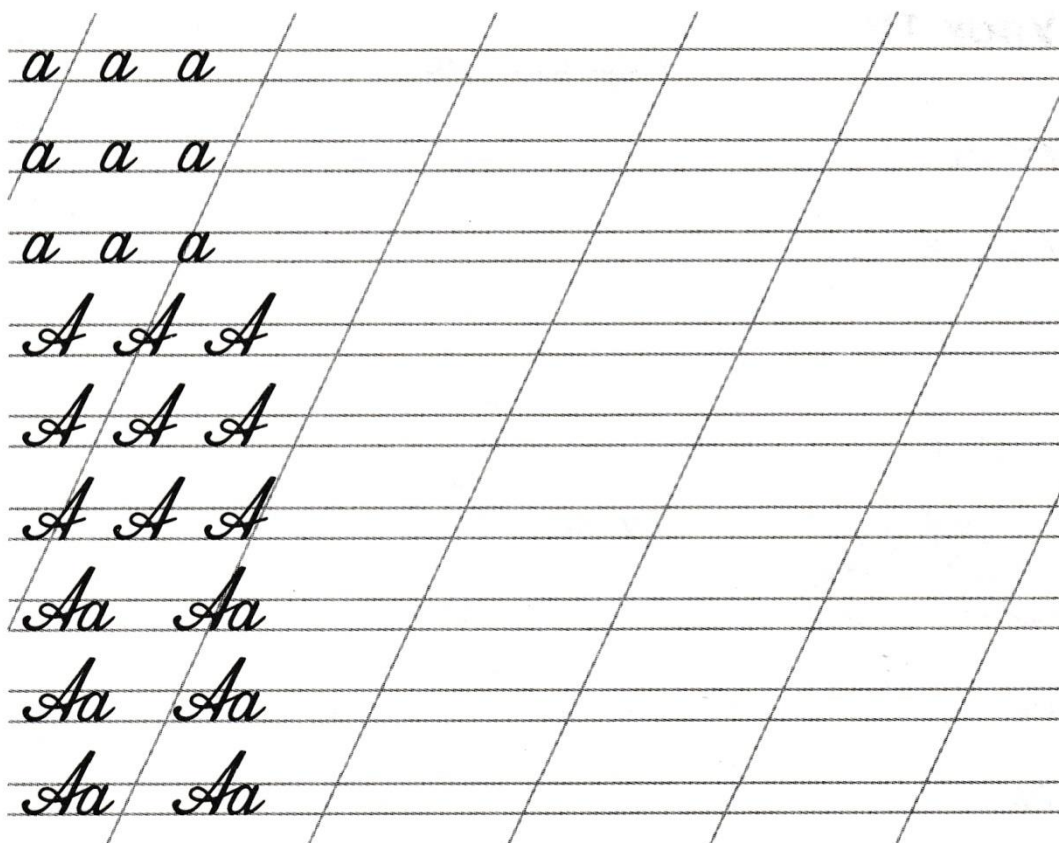 а а а
а а а
а а а
А А А
А А А
А А А
Аа Аа
Аа Аа
Аа Аа